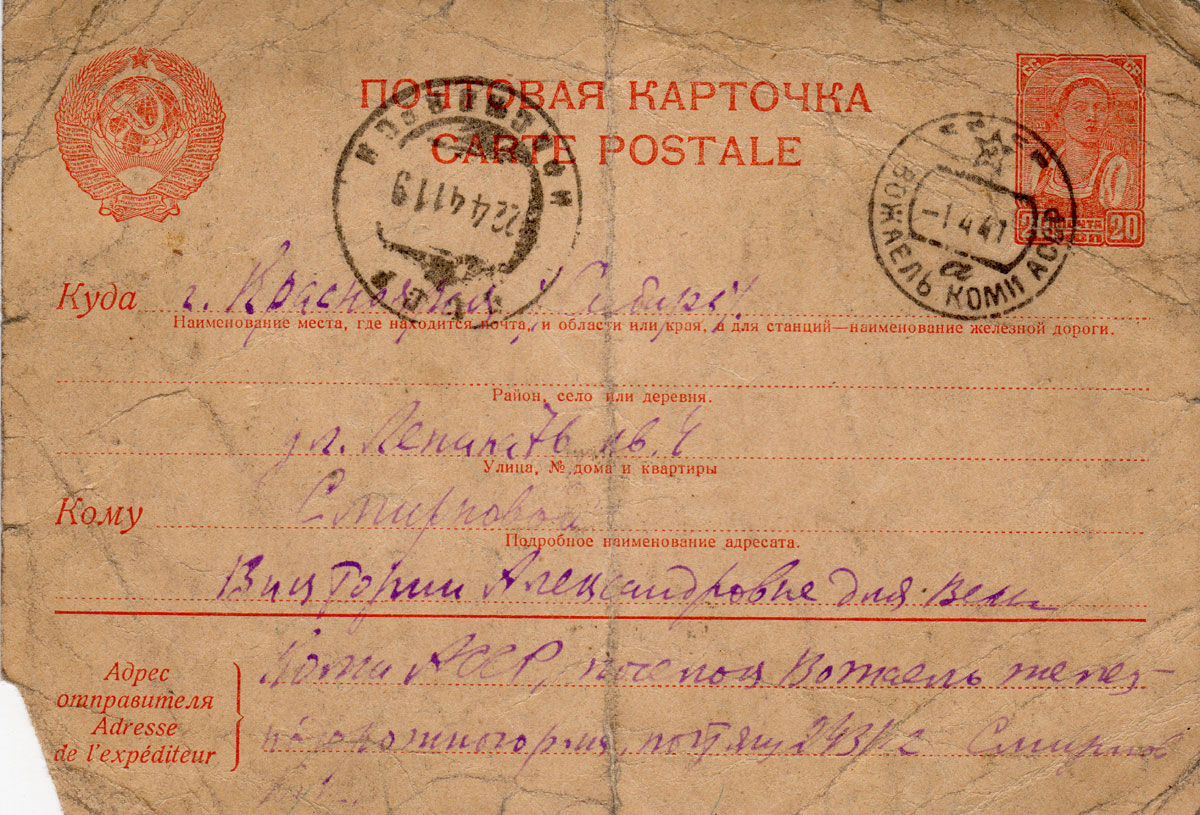 ПОЧТОВАЯ КАРТОЧКА
CARTE POSTALE
20 20
ВОЖАЕЛЬ КОМИ АССР
-1 4 41
а
22 4 41 19
Куда г. Красноярск / Сибирь /
Наименование места, где находится почта, и области или края, а для станций—наименование железной дороги.
Район, село или деревня.
ул. Ленина 76 кв. 4
Улица, № дома и квартиры
Кому Смирновой
Подробное наименование адресата.
Виктории Александровне для
Адрес отправителя
Adresse de l'expéditeur
Коми АССР, Вожаель желез-
243/г Смирнов